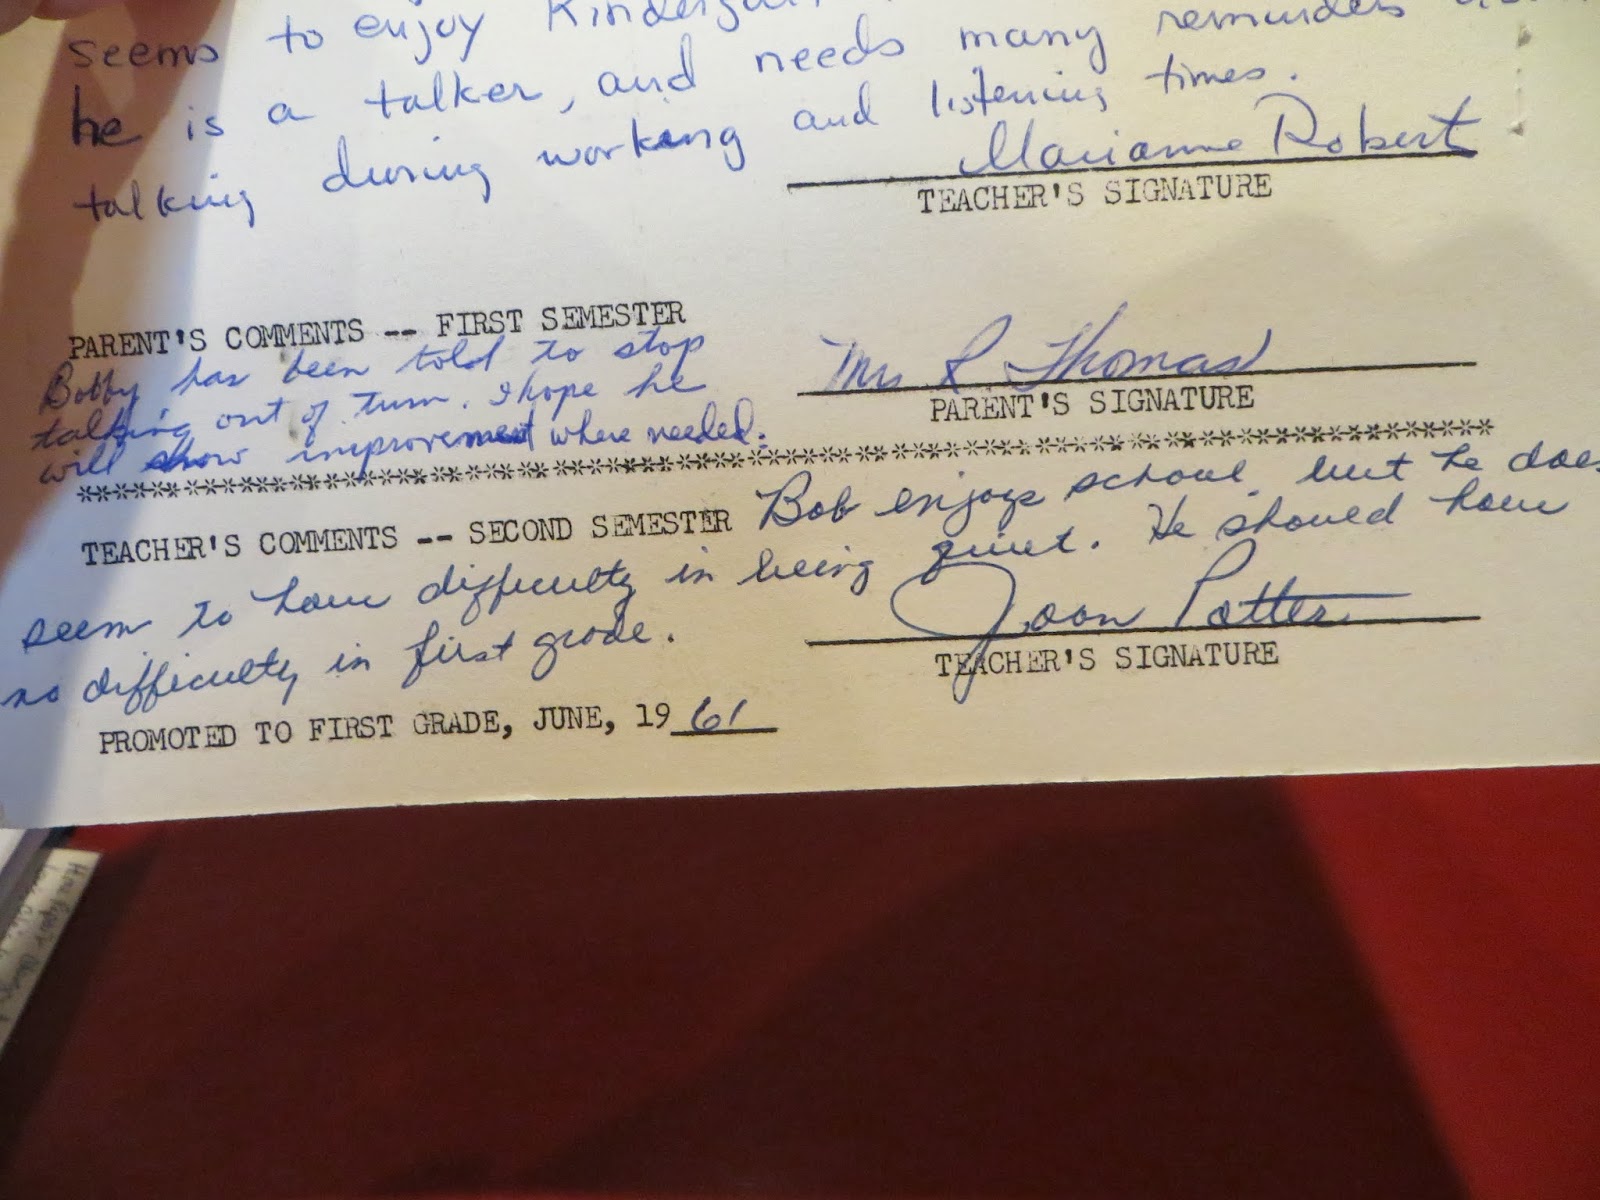 seems to enjoy Kindergar
he is a talker, and needs many reminders
talking during working and listening times.
Marianne Robert
TEACHER'S SIGNATURE
PARENT'S COMMENTS -- FIRST SEMESTER
Bobby has been told to stop
talking out of turn. I hope he
will show improvement where needed.
Mrs R Thomas
PARENT'S SIGNATURE
TEACHER'S COMMENTS -- SECOND SEMESTER Bob enjoys school, but he does
seem to have difficulty in being quiet. He should have
no difficulty in first grade.
Joan Potter
TEACHER'S SIGNATURE
PROMOTED TO FIRST GRADE, JUNE, 19 61